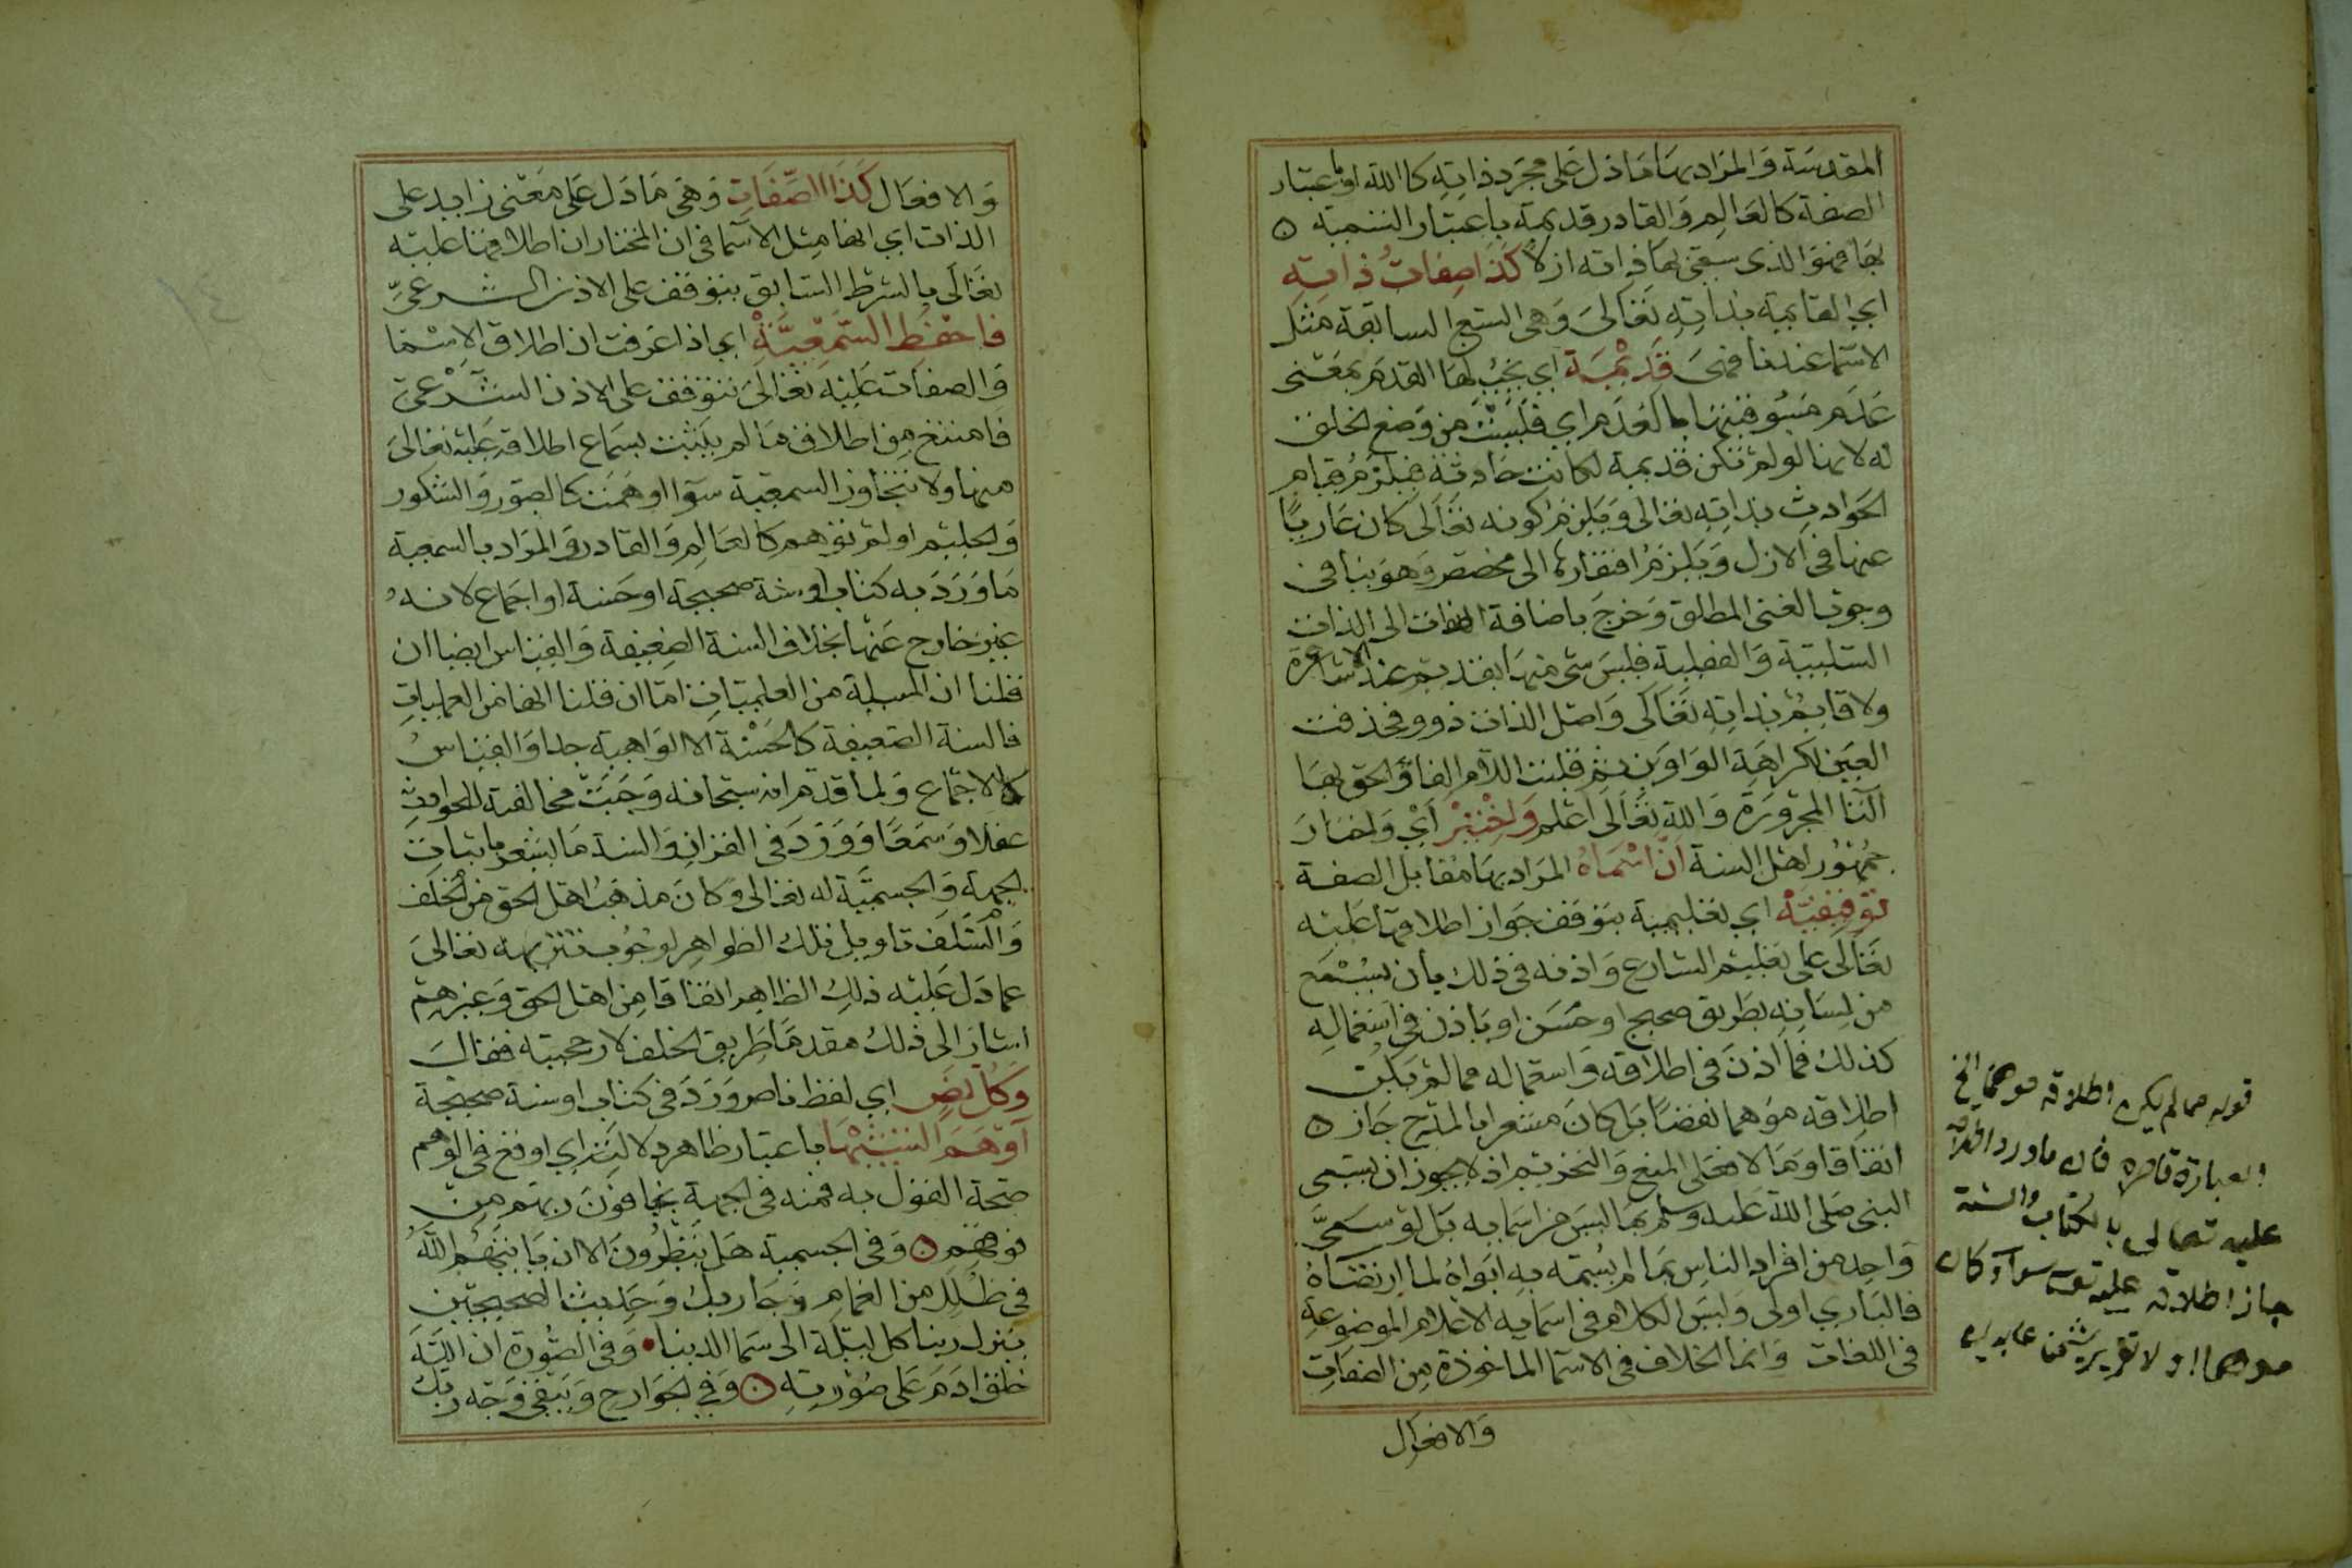 المقدسة والمراد بها ما دل على مجرد ذاته كالله او باعتبار
الصفة كالعالم والقادر قديمة باعتبار التسمية ه
بها فهو الذى سمى بها ذاته ازلا كذا صفات ذاته
اي القايمة بذاته تعالى وهى السبع السابقة مثل
الاسما عندنا فهى قديمة اي يجب لها القدم بمعنى
عدم مسبوقيتها بالعدم اي فليست من وضع الخلق
له لانها لو لم تكن قديمة لكانت حادثة فيلزم قيام
الحوادث بذاته تعالى ويلزم كونه تعالى كان عاريا
عنها فى الازل ويلزم افتقارها الى مخصص وهو ينافى
وجوب الغنى المطلق وخرج باضافة الصفات الى الذات
السلبية والفعلية فليس شى منها بقديم عند الاشاعرة
ولا قايم بذاته تعالى واصل الذات ذوو فحذفت
العين لكراهة الواوين ثم قلبت اللام الفا والحق بها
التا المجرورة والله تعالى اعلم واختير اي واختار
جمهور اهل السنة ان اسماه المراد بها مقابل الصفة
توقيفية اي تعليمية يتوقف جواز اطلاقها عليه
تعالى على تعليم الشارع واذنه فى ذلك بأن يسمع
من لسانه بطريق صحيح او حسن او باذن فى استعماله
كذلك فما اذن فى اطلاقه واستعماله مما لم يكن
اطلاقه موهما نقضا بل كان مشعرا بالمدح جاز ه
اتفاقا وما لا فعلى المنع والتحريم اذ لا يجوز ان يسمى
النبى صلى الله عليه وسلم بما ليس من اسمايه بل لو سمى
واحد من افراد الناس بما لم يسمه به ابواه لما ارتضاه
فالباري اولى وليس الكلام فى اسمايه الاعلام الموضوعة
فى اللغات وانما الخلاف فى الاسما الماخوذة من الصفات
والافعال
قوله مما لم يكن اطلاقه موهما الخ
العبارة قاصرة فان ما ورد اطلاقه
عليه تعالى بالكتاب والسنة
جاز اطلاقه عليه تعـ سوآء كان
موهما او لا
والافعال كذا الصفات وهى ما دل على معنى زايد على
الذات اي انها مثل الاسما فى ان المختار ان اطلاقها عليه
تعالى بالشرط السابق يتوقف على الاذن الشرعى
فاحفظ السمعية اي اذا عرفت ان اطلاق الاسما
والصفات عليه تعالى يتوقف على الاذن الشرعى
فامتنع من اطلاق ما لم يثبت سماع اطلاقه عليه تعالى
منها ولا تتجاوز السمعية سوا اوهمت كالصبور والشكور
والحليم او لم توهم كالعالم والقادر والمراد بالسمعية
ما ورد به كتاب او سنة صحيحة او حسنة او اجماع لانه
غير خارج عنها بخلاف السنة الضعيفة والقياس ايضا ان
قلنا ان المسيلة من العلميات اما ان قلنا انها من العمليات
فالسنة الضعيفة كالحسنة الا الواهية جدا والقياس
كالاجماع ولما قدم انه سبحانه وجبت مخالفته للحوادث
عقلا وسمعا وورد فى القران والسنة ما يشعر باثبات
الجهة والجسمية له تعالى وكان مذهب اهل الحق من الخلف
والسلف تاويل تلك الظواهر لوجوب تنزيهه تعالى
عما دل عليه ذلك الظاهر اتفاقا من اهل الحق وغيرهم
اشار الى ذلك مقدما طريق الخلف لارجحيته فقال
وكل نص اي لفظ ناص ورد فى كتاب او سنة صحيحة
اوهم التشبيها باعتبار ظاهر دلالته اي اوقع فى الوهم
صحة القول به فمنه فى الجهة يخافون ربهم من
فوقهم ه وفى الجسمية هل ينظرون الا ان ياتيهم الله
فى ظلل من الغمام وجا ربك وحديث الصحيحين
ينزل ربنا كل ليلة الى سما الدنيا • وفى الصورة ان الله
خلق ادم على صورته ه وفى الجوارح ويبقى وجه ربك